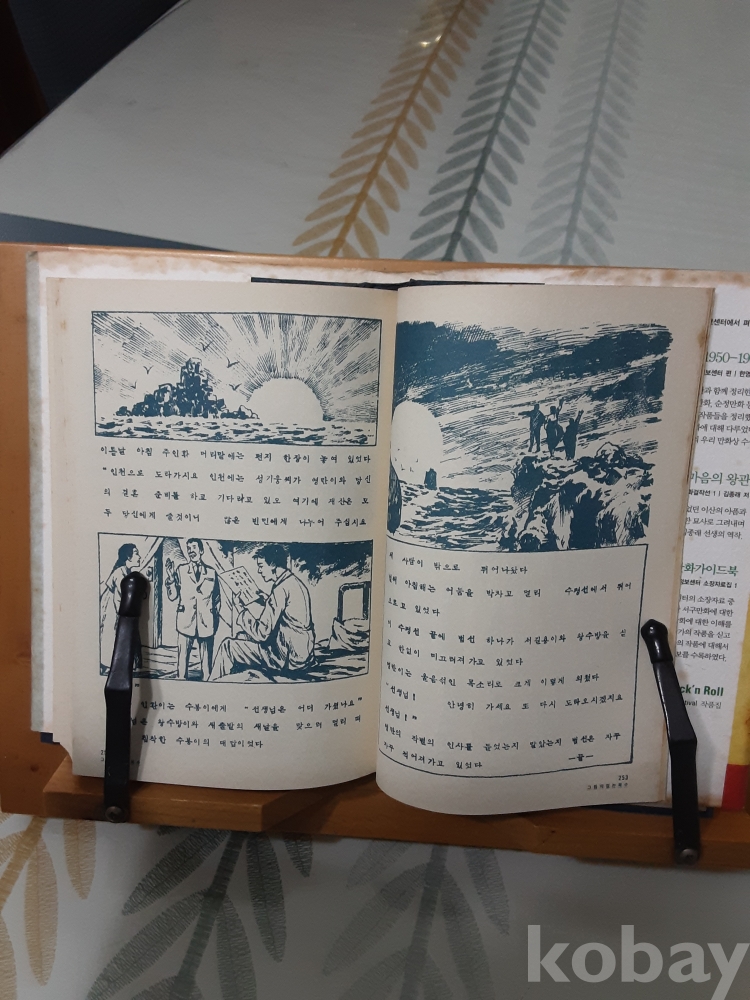 이튿날 아침 주인환 머리맡에는 편지 한장이 놓여 있었다
"인천으로 도라가시요 인천에는 성기웅씨가 영란이와 당신
의 결혼 준비를 하고 기다리고 있오 여기에 재산은 모
두 당신에게 줄것이니 많은 빈민에게 나누어 주십시요
인환이는 수봉이에게 "선생님은 어데 가셨나요"
왕수방이와 새출발의 새날을 맞으려 멀리 떠
침착한 수봉이의 대답이였다
세 사람이 밖으로 뛰어나왔다
아침해는 어둠을 박차고 멀리 수평선에서 뛰어
오르고 있었다
저 수평선 끝에 범선 하나가 서길용이와 왕수방을 싣
고 한없이 미끄러져가고 있었다
영란이는 울음섞인 목소리로 크게 이렇게 외쳤다
"선생님! 안녕히 가세요 또 다시 도라오시겠지요
선생님!"
작별의 인사를 들었는지 말았는지 범선은 자꾸
자꾸 멀어져가고 있었다 —끝—
253
센터에서 펴
1950~19
보센터 편 | 한영
과 함께 정리한
만화, 순정만화 등
작품들을 정리했
에 대해 다루었다
우리 만화상 수
마음의 왕관
걸작선 1 | 김종래 저
었던 이산의 아픔과
한 묘사로 그려내며
김종래 선생의 역작.
화가이드북
보센터 소장자료집 1
센터의 소장자료 중
한 서구만화에 대한
화에 대한 이해를
가의 작품을 싣고
의 작품에 대해서
보를 수록하였다.
ck'n Roll
stival 작품집
kobay